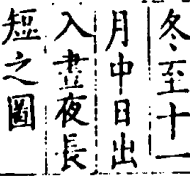 冬至十一
月中日出
入晝夜長
短之圖